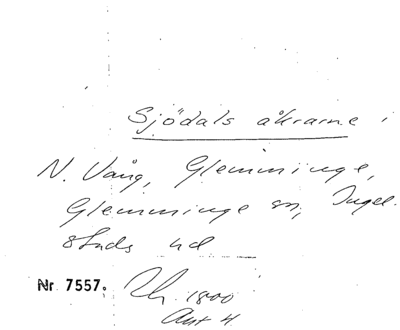 Sjödals åkrarne i
N. Vång, Glemminge,
Glemminge sn, Ingel-
stads hd
Nr 7557. Uh. 1800
Aut 4